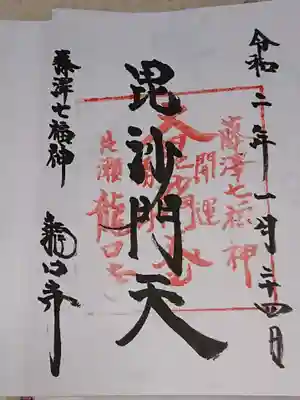 令和二年一月二十四日
毘沙門天
藤沢七福神
龍口寺
藤沢七福神
開運
片瀬龍口寺